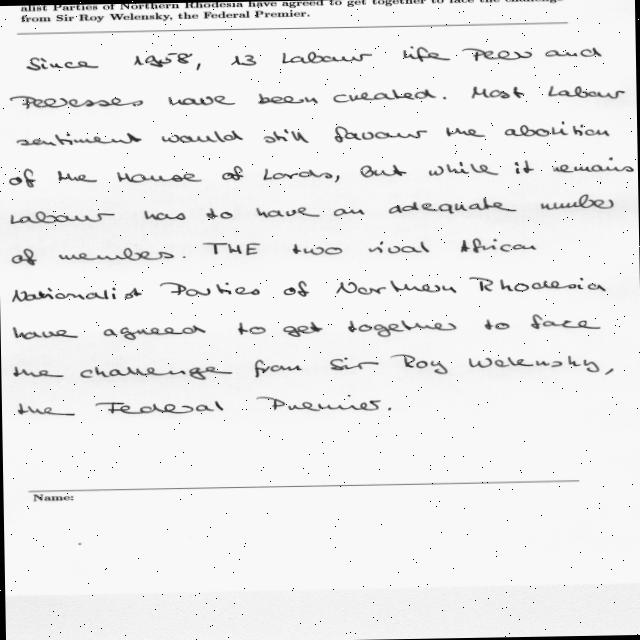 alist Parties of Northern Rhodesia have agreed to get together to face the challenge
from Sir Roy Welensky, the Federal Premier.
Since 1958, 13 Labour life Peers and
Peeresses have been created. Most Labour
sentiment would still favour the abolition
of the House of Lords, but while it remains
Labour has to have an adequate number
of members. THE two rival African
Nationalist Parties of Northern Rhodesia
have agreed to get together to face
the challenge from Sir Roy Welensky,
the Federal Premier.
Name: